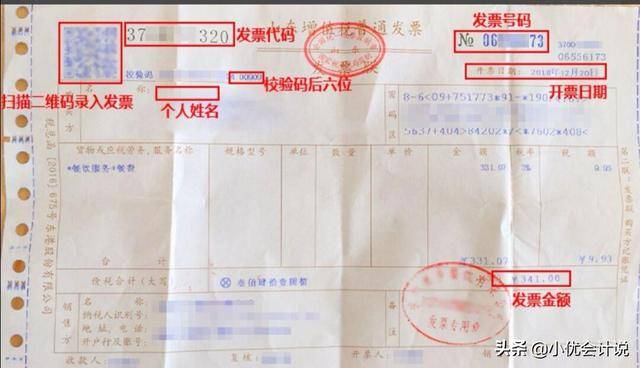 37 320 发票代码
山东增值税普通发票
发票号码
№ 06 73
3700
06556173
校验码
校验码后六位
开票日期: 2018年12月20日
开票日期
扫描二维码录入发票
个人姓名
名 称:
密码区
8-6<09+751773*91-*190
5637+404>84202*/<*7602*408<
货物或应税劳务、服务名称 规格型号 单位 数量 单价 金额 税率 税额
*餐饮服务*餐费 331.07 3% 9.93
合计 ¥331.07 ¥9.93
价税合计(大写) ⊗叁佰肆拾壹圆整 ¥341.00
发票金额
销售方
名 称:
纳税人识别号:
地址、电话:
开户行及账号:
备注
发票专用章
收款人: 复核:
税总函[2016]675号东港股份有限公司
第二联:发票联 购买方记账凭证
头条 @小优会计说